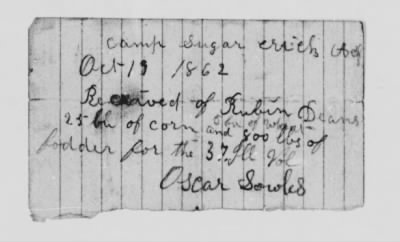 camp sugar crich
Oct 19 1862
Received of Rubin Deans
25 bh of corn and 800 lbs of
fodder for the 37 Ill Vol
Oscar Sowles